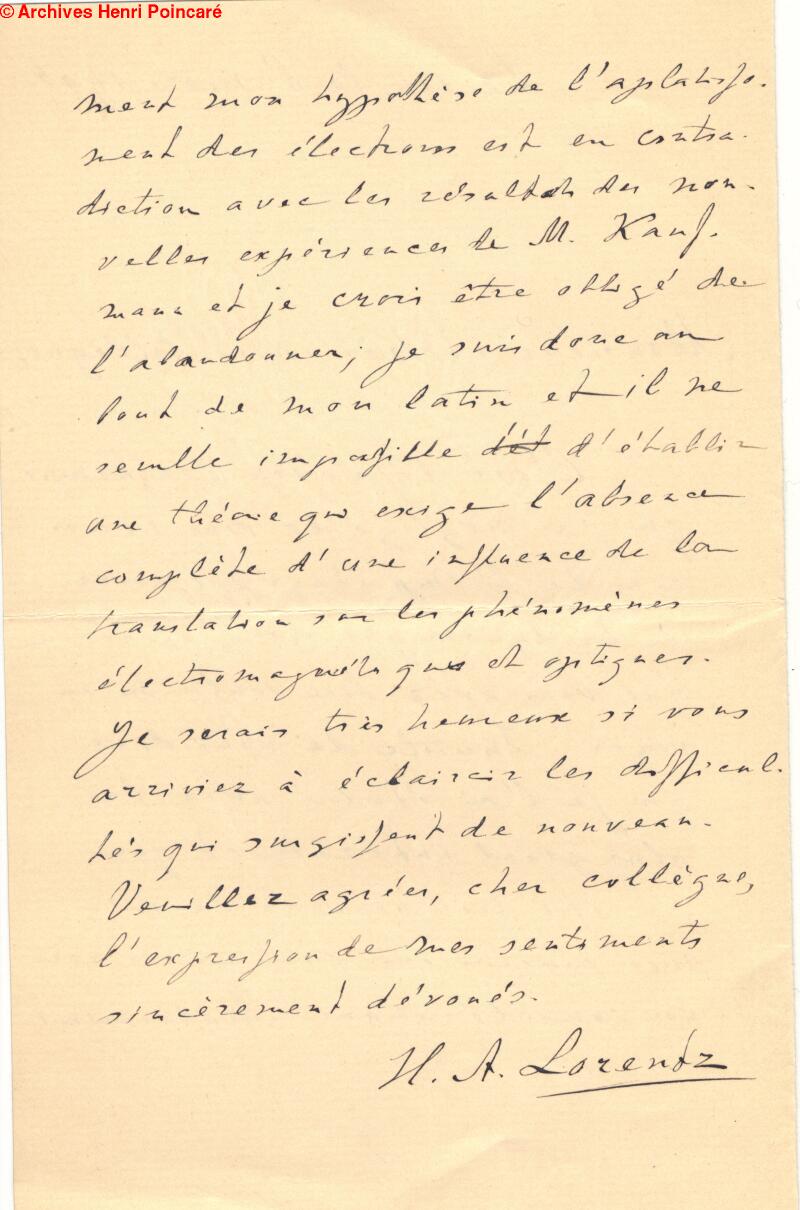 © Archives Henri Poincaré
ment mon hypothèse de l'aplatisse-
ment des électrons est en contra-
diction avec les résultats des nou-
velles expériences de M. Kauf-
mann et je crois être obligé de
l'abandonner; je suis donc au
bout de mon latin et il me
semble impossible dét d'établir
une théorie qui exige l'absence
complète d'une influence de la
translation sur les phénomènes
électromagnétiques et optiques.
Je serais très heureux si vous
arriviez à éclaircir les difficul-
tés qui surgissent de nouveau.
Veuillez agréer, cher collègue,
l'expression de mes sentiments
sincèrement dévoués.
H. A. Lorentz